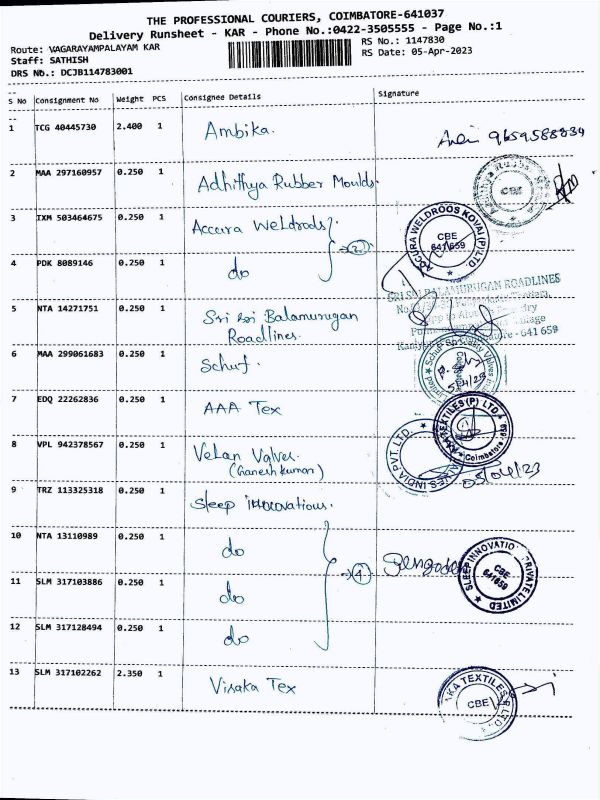 THE PROFESSIONAL COURIERS, COIMBATORE-641037
Delivery Runsheet - KAR - Phone No.:0422-3505555 - Page No.:1
Route: VAGARAYAMPALAYAM KAR
RS No.: 1147830
Staff: SATHISH
RS Date: 05-Apr-2023
DRS No.: DCJB114783001
S No Consignment No Weight PCS Consignee Details Signature
1 TCG 40445730 2.400 1 Ambika. 9659588834
2 MAA 297160957 0.250 1 Adhithya Rubber Moulds. CBE
3 IXM 503464675 0.250 1 Accura Weldrods. 2 ACCURA WELDRODS KOVAI (P) LTD. CBE 641 659
4 PDK 8089146 0.250 1 do
SRI SRI BALAMURUGAN ROADLINES
641 659
5 NTA 14271751 0.250 1 Sri Sri Balamurugan
Roadlines.
6 MAA 299061683 0.250 1 Schuf.
7 EDQ 22262836 0.250 1 AAA Tex TEXTILES (P) LTD Coimbatore-659
8 VPL 942378567 0.250 1 Velan Valves. INDIA PVT. LTD 05/04/23
(Ganesh kumar)
9 TRZ 113325318 0.250 1 Sleep innovations.
10 NTA 13110989 0.250 1 do
4 SLEEP INNOVATION PRIVATE LIMITED CBE 641659
11 SLM 317103886 0.250 1 do
12 SLM 317128494 0.250 1 do
13 SLM 317102262 2.350 1 Visaka Tex KA TEXTILES CBE